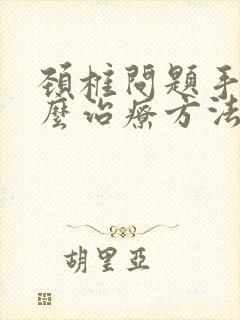 頚椎問題手
麼治療方法
胡里亞